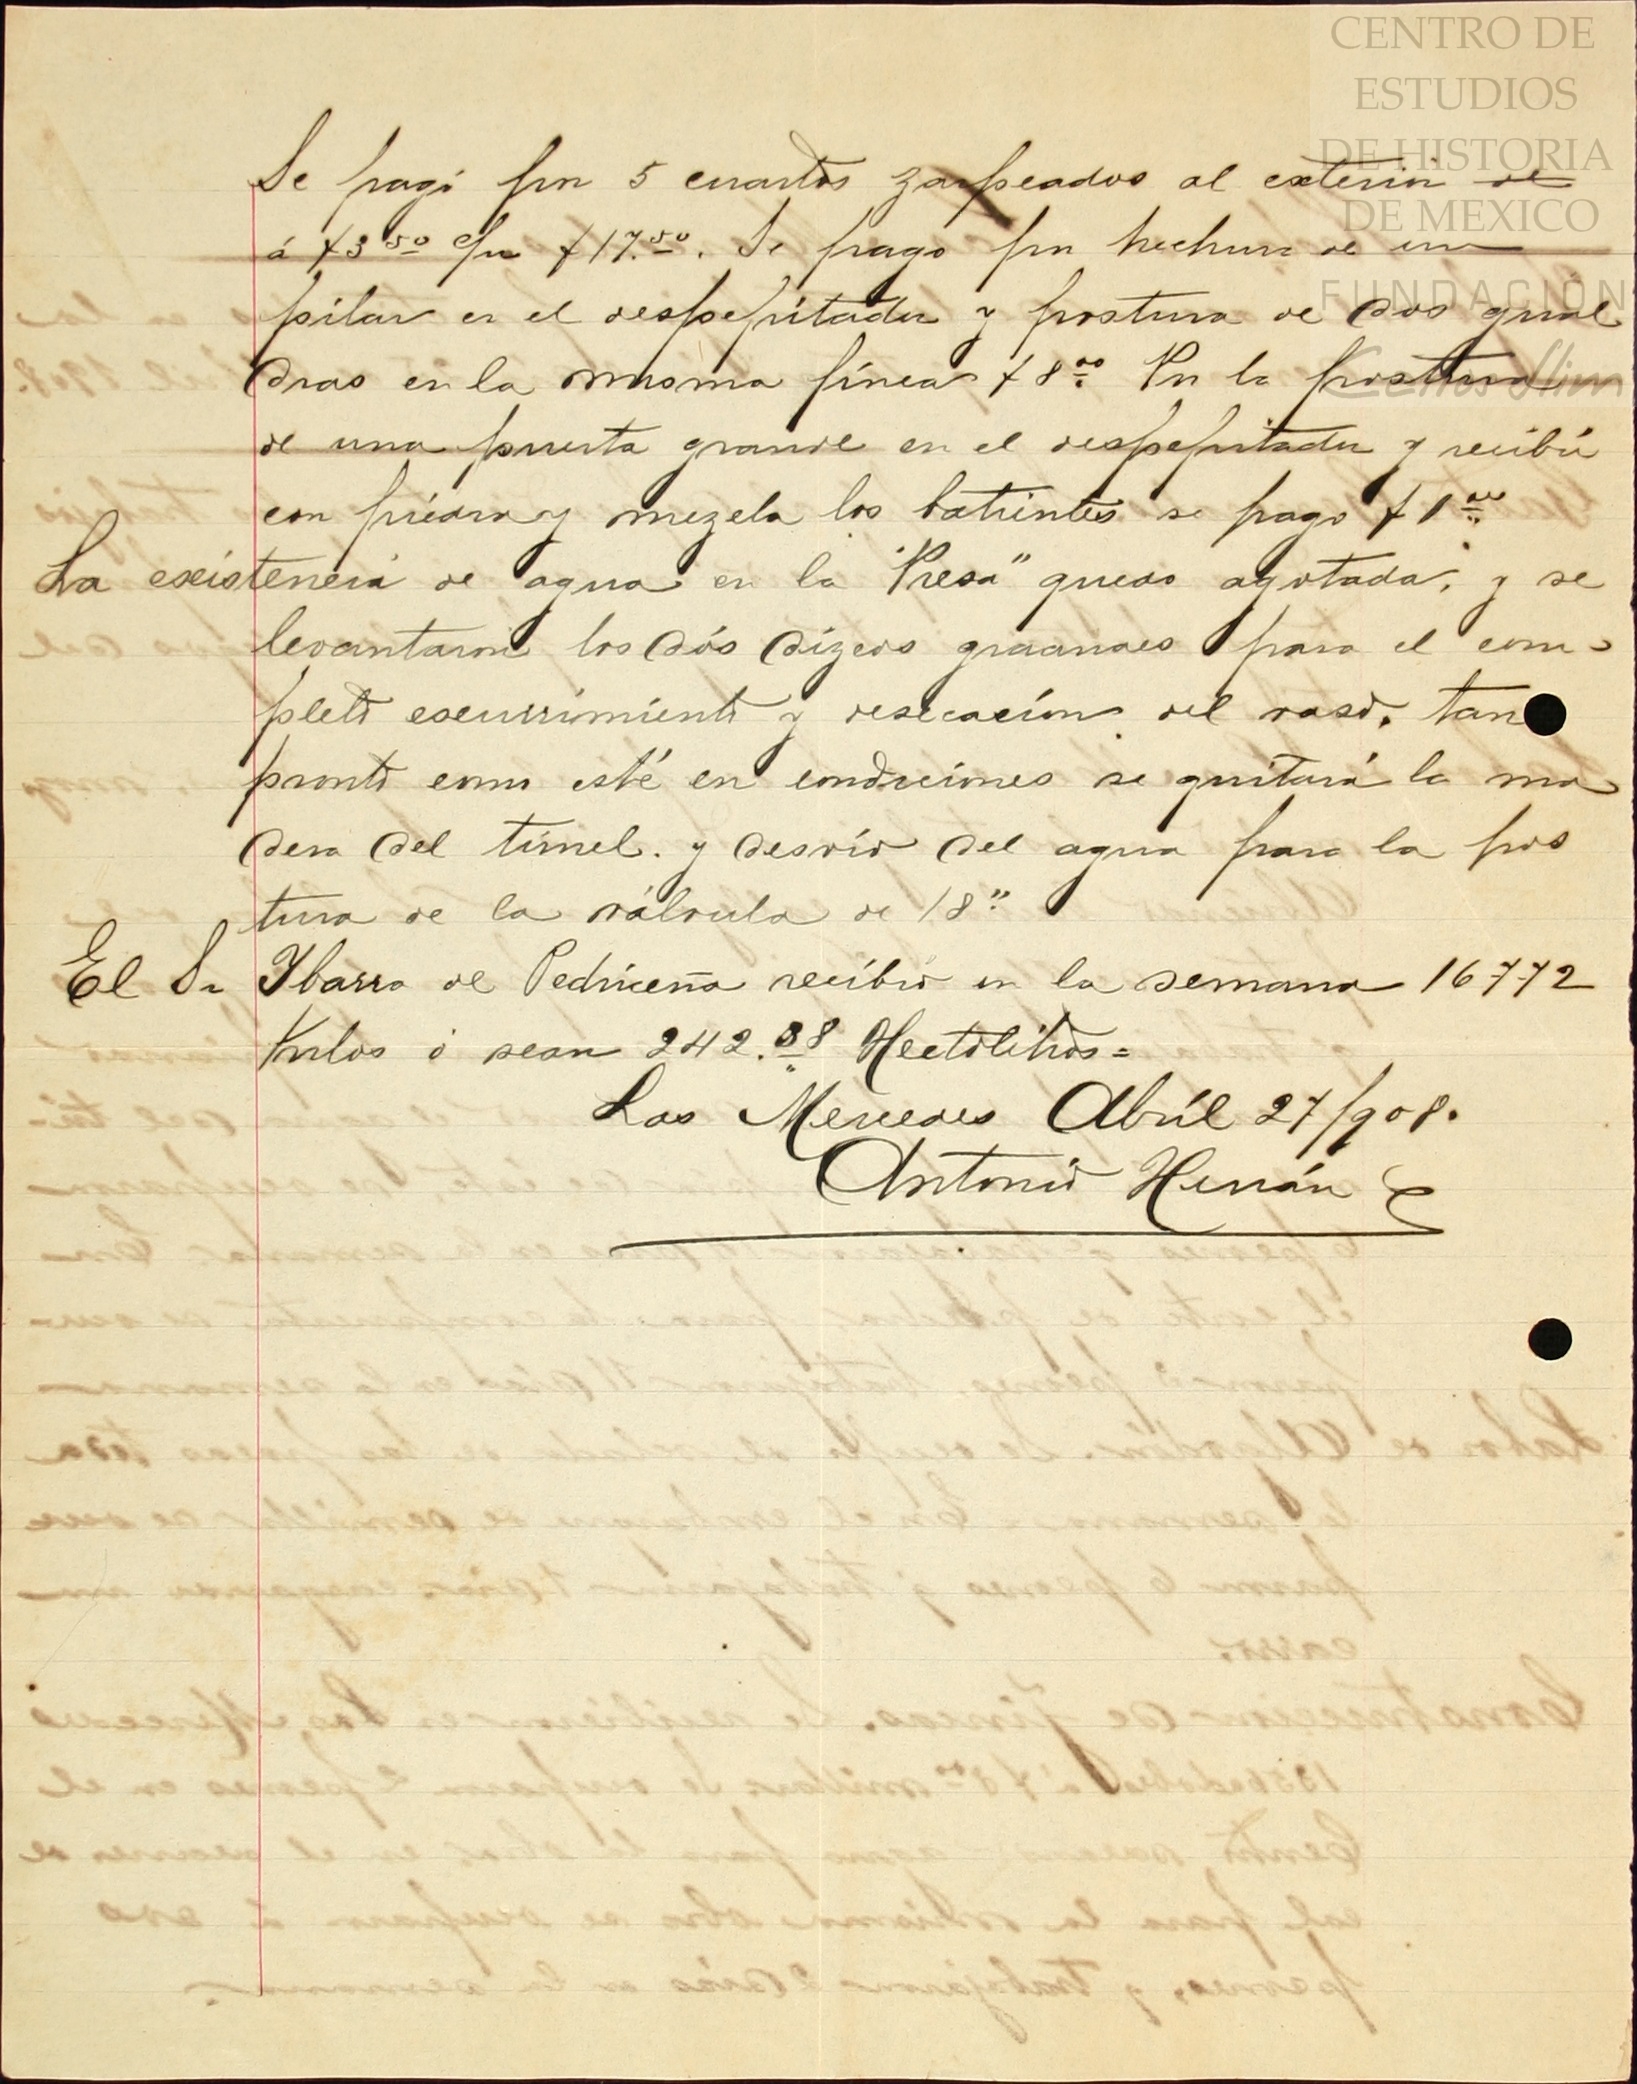 CENTRO DE
ESTUDIOS
DE HISTORIA
DE MEXICO
FUNDACIÓN
Carlos Slim
Se pagó por 5 cuartos zarpeados al exterior de
á $3.50 c/u $17.50. Se pago por hechura de un
pilar en el despepitador y postura de dos gual
dras en la misma finca $8.00 Por la postura
de una puerta grande en el despepitador y recibir
con piedra y mezcla los batientes se pago $1.00
La existencia de agua en la "Presa" quedo agotada, y se
levantaron los dós dizcos graandes para el com-
pleto escurrimiento y desecación del vaso, tan
pronto como esté en condiciones se quitará la ma
dera del túnel. y desvío del agua para la pos
tura de la válvula de 18"
El Sr Ybarra de Pedriceña recibió en la semana 16772
Kilos ó sean 242.38 Hectolitros=
Las Mercedes Abríl 27/908.
Antonio Herrán